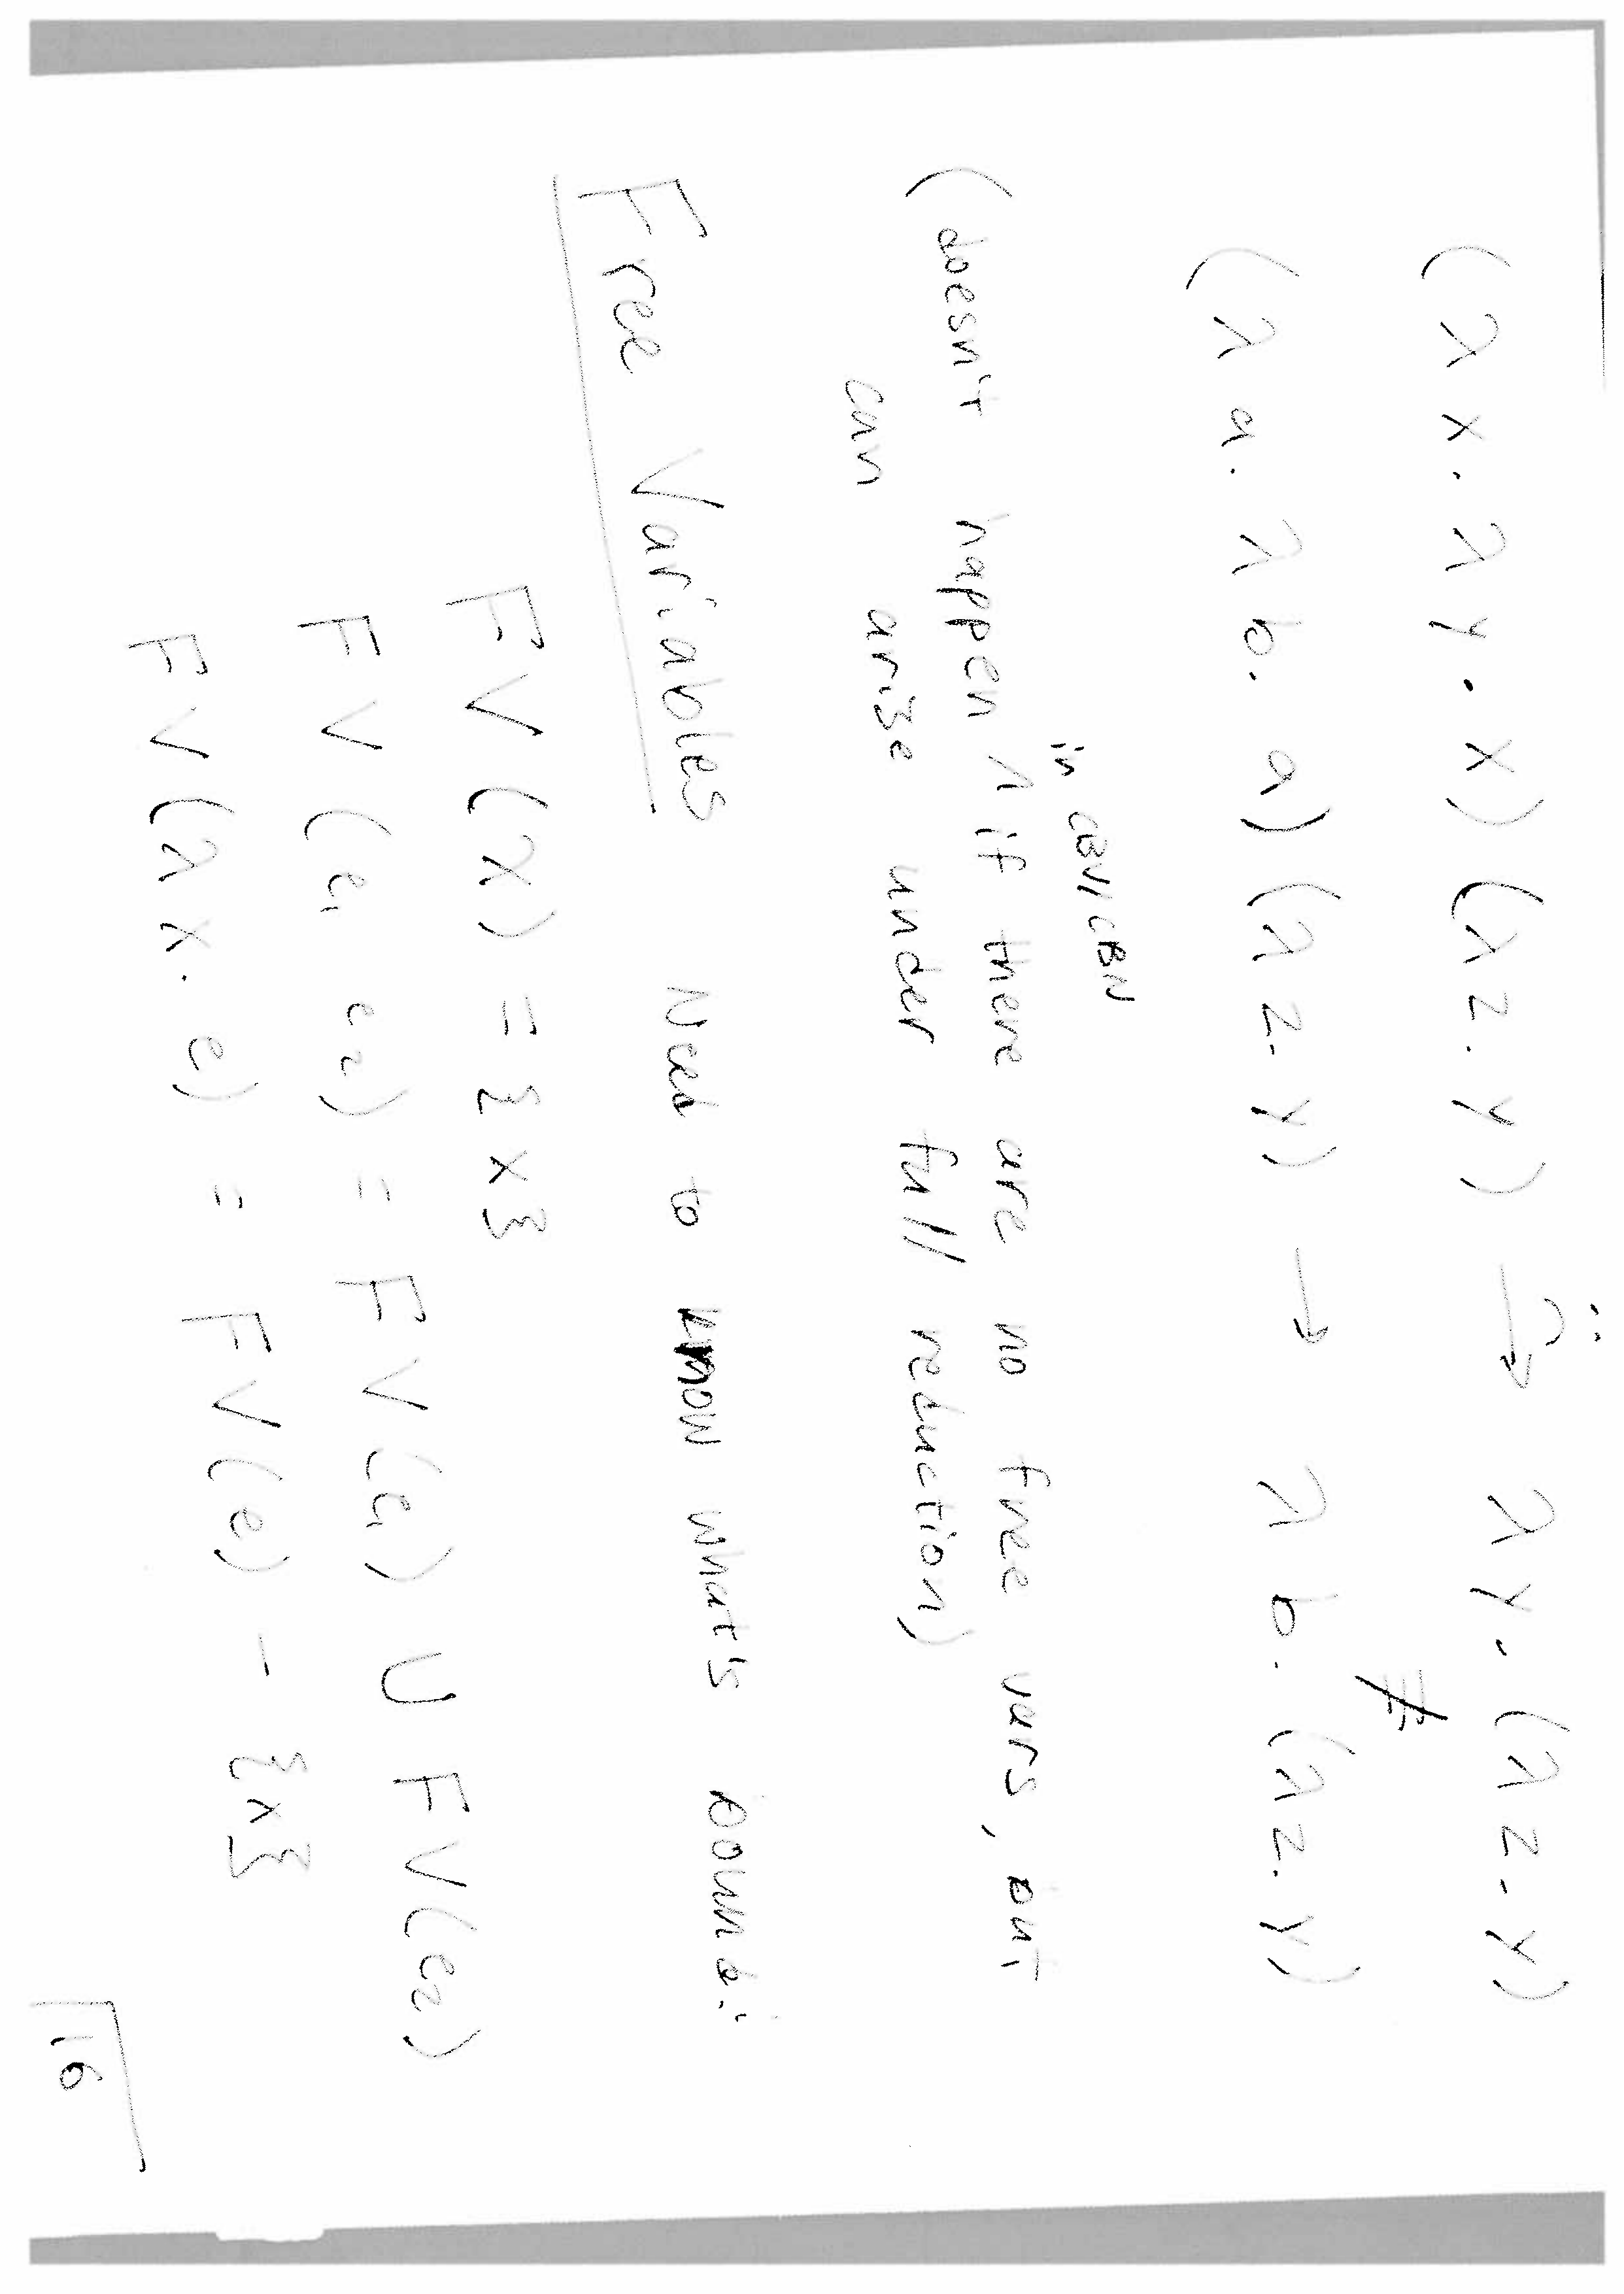 (λ x. λ y. x) (λ z. y) → λ y. (λ z. y)
≢
(λ a. λ b. a) (λ z. y) → λ b. (λ z. y)
in CBV/CBN
(doesn't happen ^ if there are no free vars, but
can arise under full reduction)
Free Variables Need to know what's bound:
FV(x) = {x}
FV(e1 e2) = FV(e1) ∪ FV(e2)
FV(λ x. e) = FV(e) - {x}
16